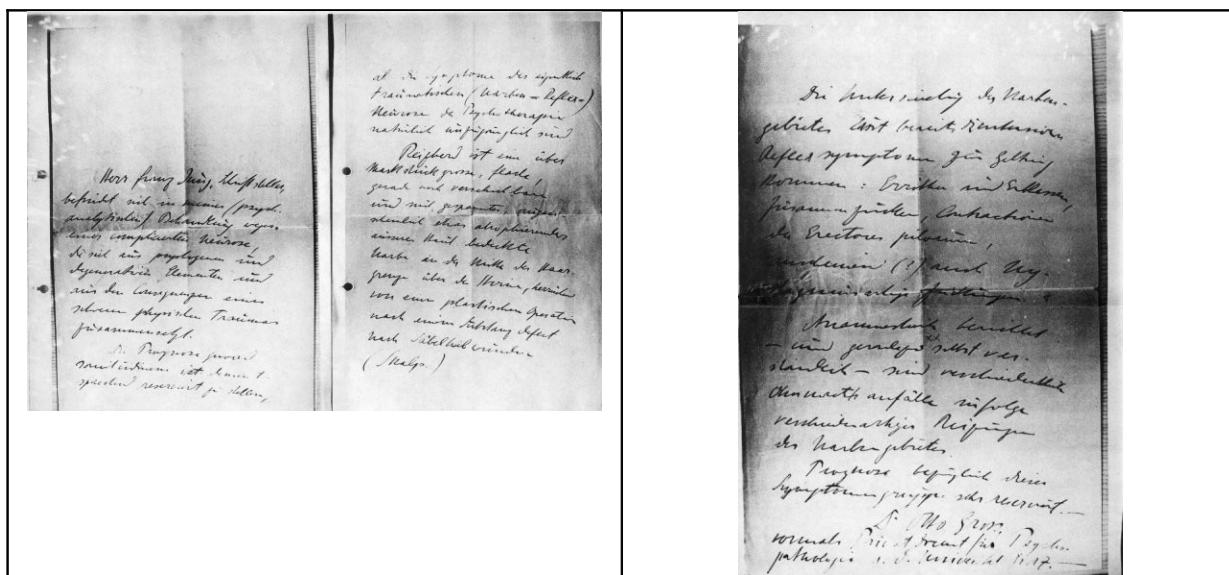 Herr Franz Jung, Schriftsteller,
befindet sich in meiner (psych-
analytischen) Behandlung wegen
einer complicierten Neurose,
die sich aus psychogenen und
degenerativen Elementen und
aus den Consequenzen eines
schweren physischen Traumas
zusammensetzt.
Die Prognose quoad
sanationem ist dement-
sprechend reserviert zu stellen,
als die Symptome des eigentlich
traumatischen (Narben = Reflex=)
Neurose der Psychotherapie
natürlich unzugänglich sind
ist eine über
Markstück grosse, flache,
gerade noch verschiebbare
und mit gespannter,
etwas atrophierender
Haut bedeckte
Narbe an der Mitte des Haar-
grenze über der Stirne, herrührend
von einer plastischen Operation
nach einem Substanz defect
nach Säbelhiebwunden
(Skalp.)
Die Untersuchung des Narben-
gebietes löst bereits
Reflex symptome zur Geltung
kommen: Erröthen und Erblassen,
Zusammenzucken, Contractionen
der Erectores pilorum,
(?) auch Ny-
Anamnestisch berichtet
– und geradezu selbst ver-
ständlich – sind verschiedentliche
Ohnmachts anfälle infolge
verschiedenartiger Reizungen
des Narbengebietes.
Prognose bezüglich dieser
Symptomengruppe sehr reserviert. —
Dr Otto Gross
vormals Privatdocent für Psycho-
pathologie a. d. Universität Graz. —